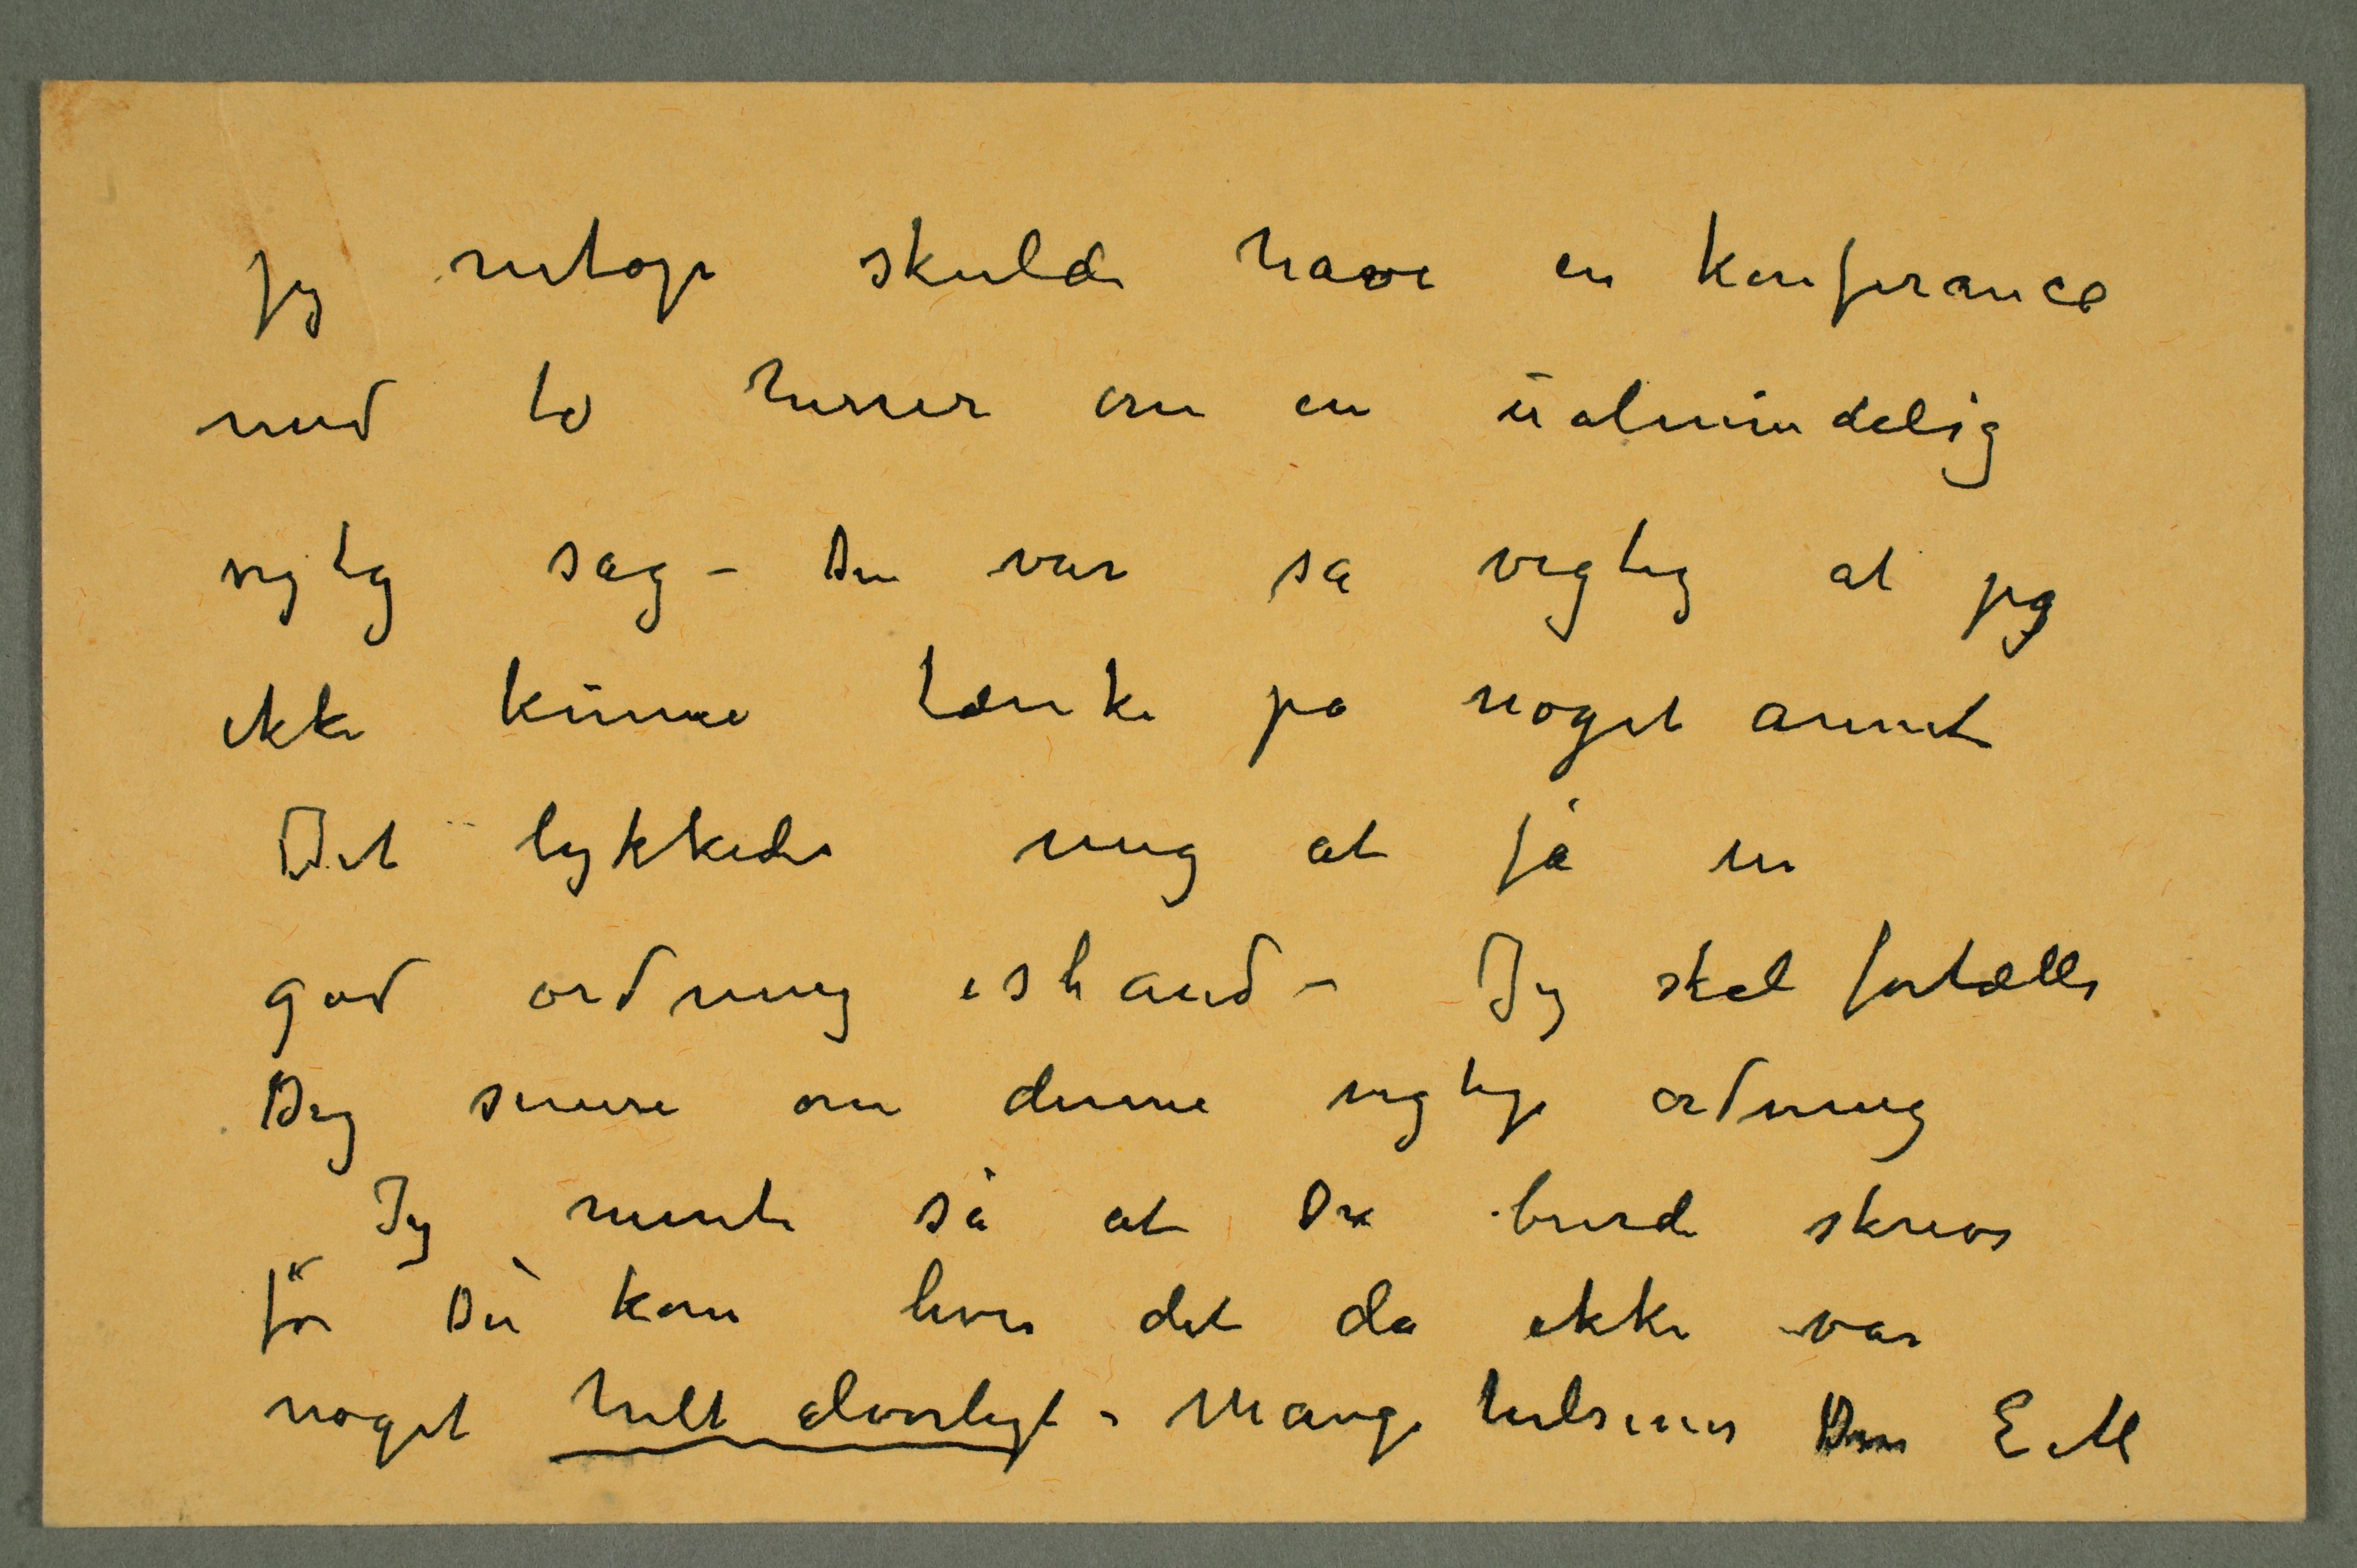 jeg netop skulde have en konferance
med to herrer om en ualmindelig
vigtig sag – Den var så vigtig at jeg
ikke kunne tænke på noget annet
Det lykkedes mig at få en
god ordning istand – Jeg skal fortælle
Dig senere om denne vigtige ordning
Jeg mente så at Du burde skrive
før Du kom hvis det da ikke var
noget helt alvorligt – Mange hilsener Din E M